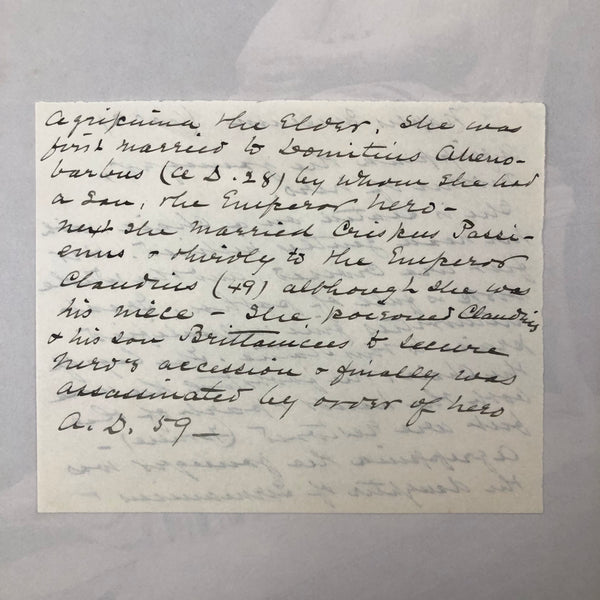 Agrippina the Elder. She was
first married to Domitius Aheno-
barbus (A.D. 28) by whom she had
a son, the Emperor Nero -
next she married Crispus Passi-
enus + thirdly to the Emperor
Claudius (49) although she was
his niece - She poisoned Claudius
+ his son Brittanicus to secure
Nero's accession + finally was
assassinated by order of Nero
A.D. 59 -